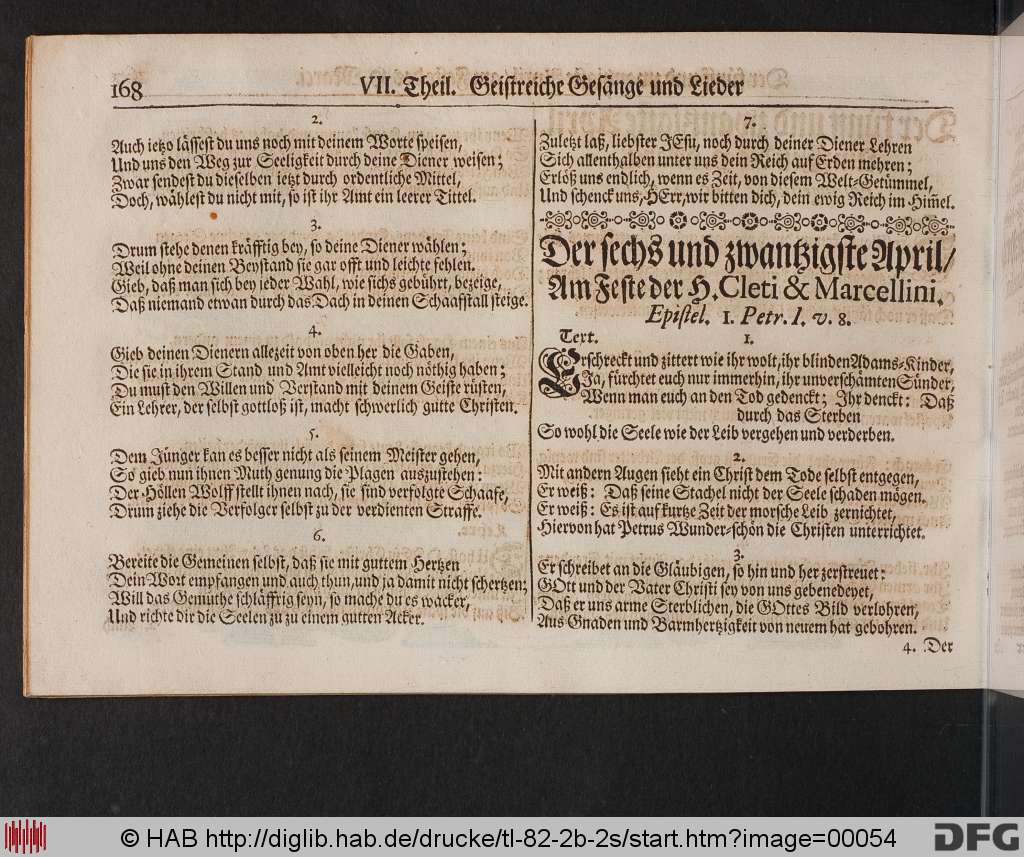 168
VII. Theil. Geistreiche Gesänge und Lieder
2.
Auch ietzo lässest du uns noch mit deinem Worte speisen,
Und uns den Weg zur Seeligkeit durch deine Diener weisen;
Zwar sendest du dieselben ietzt durch ordentliche Mittel,
Doch, wählest du nicht mit, so ist ihr Amt ein leerer Tittel.
3.
Drum stehe denen kräfftig bey, so deine Diener wählen;
Weil ohne deinen Beystand sie gar offt und leichte fehlen.
Gieb, daß man sich bey jeder Wahl, wie sichs gebührt, bezeige,
Daß niemand etwan durch das Dach in deinen Schaafstall steige.
4.
Gieb deinen Dienern allezeit von oben her die Gaben,
Die sie in ihrem Stand und Amt vielleicht noch nöthig haben;
Du must den Willen und Verstand mit deinem Geiste rüsten,
Ein Lehrer, der selbst gottloß ist, macht schwerlich gutte Christen.
5.
Dem Jünger kan es besser nicht als seinem Meister gehen,
So gieb nun ihnen Muth genung die Plagen auszustehen:
Der Höllen Wolff stellt ihnen nach, sie sind verfolgte Schaafe,
Drum ziehe die Verfolger selbst zu der verdienten Straffe.
6.
Bereite die Gemeinen selbst, daß sie mit guttem Hertzen
Dein Wort empfangen und auch thun, und ja damit nicht schertzen;
Will das Gemüthe schläffrig seyn, so mache du es wacker,
Und richte dir die Seelen zu zu einem gutten Acker.
7.
Zuletzt laß, liebster JEsu, noch durch deiner Diener Lehren
Sich allenthalben unter uns dein Reich auf Erden mehren;
Erlöß uns endlich, wenn es Zeit, von diesem Welt-Getümmel,
Und schenck uns, HErr, wir bitten dich, dein ewig Reich im Him̄el.
Der sechs und zwantzigste April/
Am Feste der H. Cleti & Marcellini.
Epistel. 1. Petr. I. v. 8.
Text. 1.
Erschreckt und zittert wie ihr wolt, ihr blinden Adams-Kinder,
Ja, fürchtet euch nur immerhin, ihr unverschämten Sünder,
Wenn man euch an den Tod gedenckt; Ihr denckt: Daß
durch das Sterben
So wohl die Seele wie der Leib vergehen und verderben.
2.
Mit andern Augen sieht ein Christ dem Tode selbst entgegen,
Er weiß: Daß seine Stachel nicht der Seele schaden mögen.
Er weiß: Es ist auf kurtze Zeit der morsche Leib zernichtet,
Hiervon hat Petrus Wunder-schön die Christen unterrichtet.
3.
Er schreibet an die Gläubigen, so hin und her zerstreuet:
GOtt und der Vater Christi sey von uns gebenedeyet,
Daß er uns arme Sterblichen, die GOttes Bild verlohren,
Aus Gnaden und Barmhertzigkeit von neuem hat gebohren.
4. Der
© HAB http://diglib.hab.de/drucke/tl-82-2b-2s/start.htm?image=00054
DFG